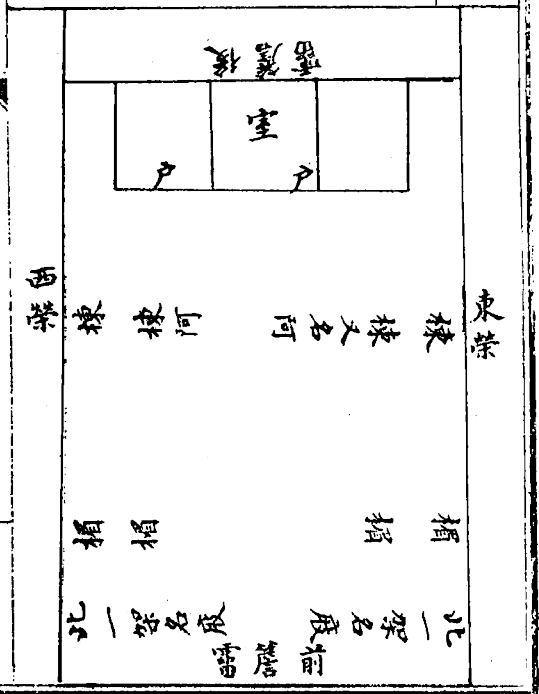 後簷霤
室
户
户
西榮
東榮
棟
棟阿
棟又名阿
棟
楣
楣
楣
楣
此一架名庪
此一架名庪
前簷霤